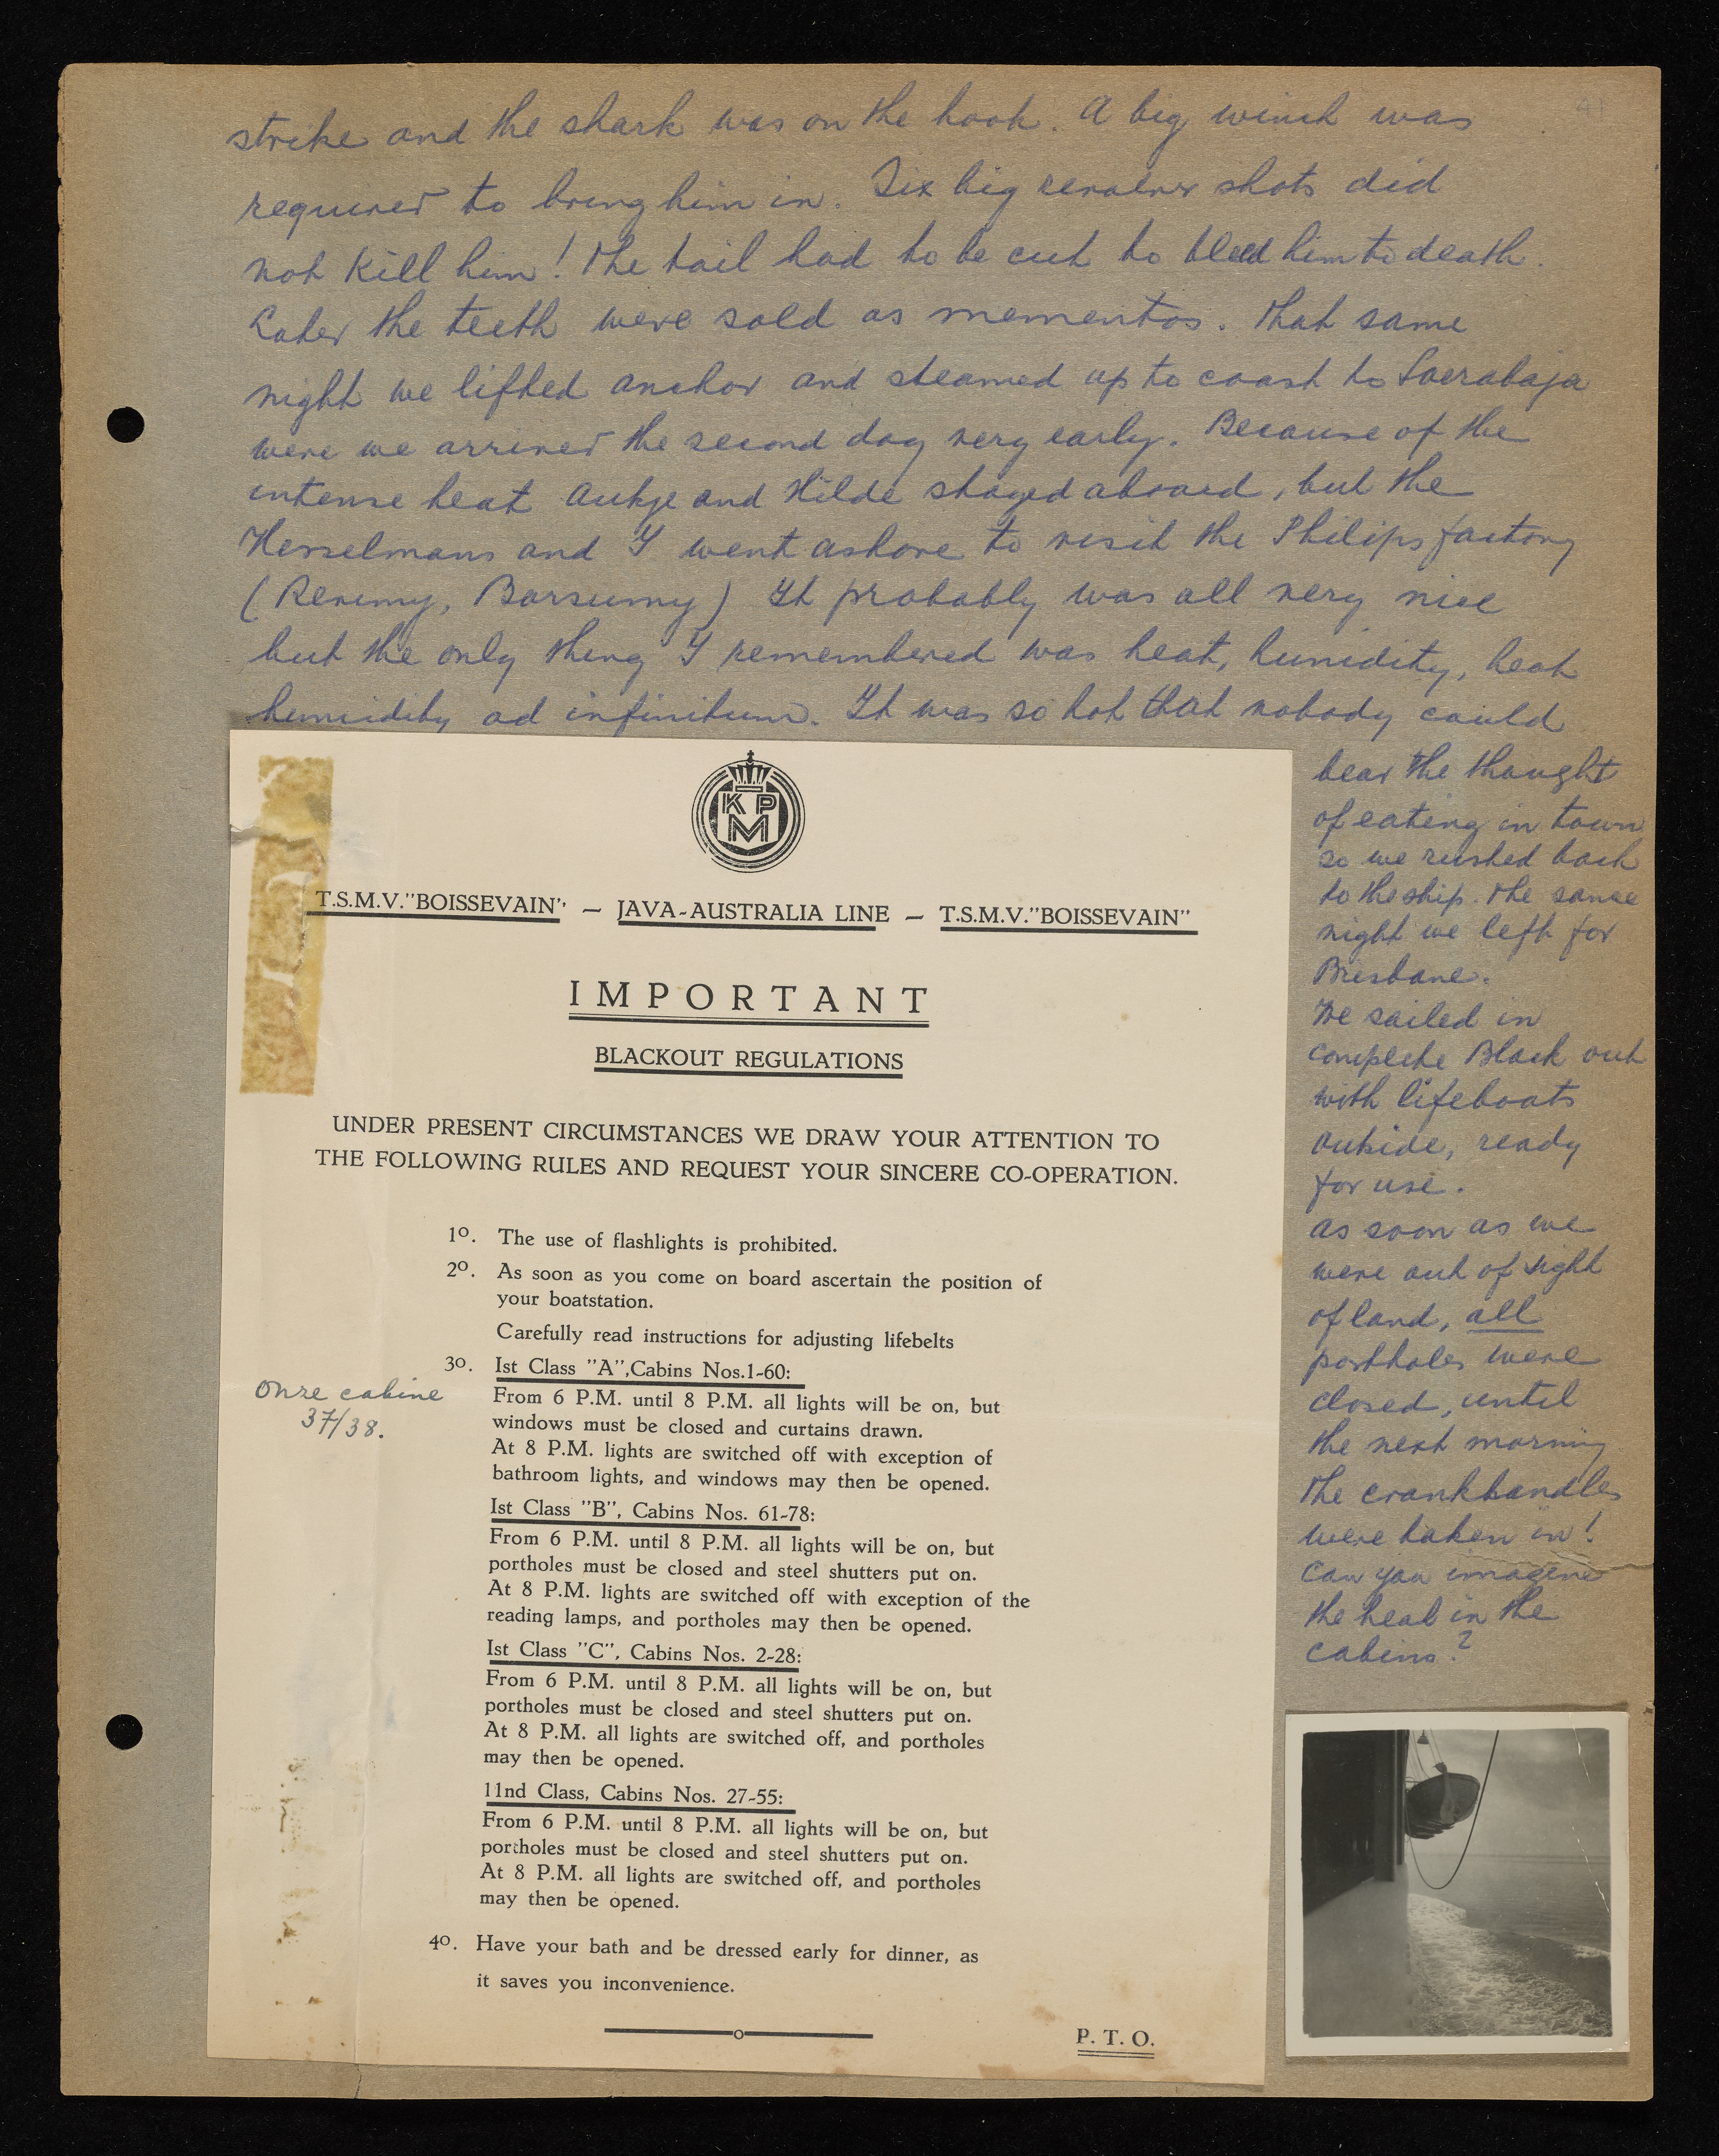 41
strike and the shark was on the hook. A big winch was
required to bring him in. Six big revolver shots did
not kill him! The tail had to be cut to bleed him to death.
Later the teeth were sold as mementos. That same
night we lifted anchor and steamed up to coast to Soerabaja
were we arrived the second day very early. Because of the
intense heat Aukje and Hilde stayed aboard, but the
Hesselmans and I went ashore to visit the Philips factory
(Barsumy) It probably was all very nice
but the only thing I remembered was heat, humidity, heat
humidity ad infinitum. It was so hot that nobody could
bear the thought
of eating in town
so we rushed back
to the ship. The same
night we left for
Brisbane.
We sailed in
complete Black out
with lifeboats
outside, ready
for use.
as soon as we
were out of sight
of land, all
portholes were
closed, until
the next morning
the crankhandles
were taken in!
Can you imagine
the heat in the
cabins?
KPM
T.S.M.V."BOISSEVAIN" – JAVA-AUSTRALIA LINE – T.S.M.V."BOISSEVAIN"
IMPORTANT
BLACKOUT REGULATIONS
UNDER PRESENT CIRCUMSTANCES WE DRAW YOUR ATTENTION TO
THE FOLLOWING RULES AND REQUEST YOUR SINCERE CO-OPERATION.
1o. The use of flashlights is prohibited.
2o. As soon as you come on board ascertain the position of
your boatstation.
Carefully read instructions for adjusting lifebelts
3o. Ist Class "A",Cabins Nos.1-60:
onze cabine
37/38.
From 6 P.M. until 8 P.M. all lights will be on, but
windows must be closed and curtains drawn.
At 8 P.M. lights are switched off with exception of
bathroom lights, and windows may then be opened.
Ist Class "B", Cabins Nos. 61-78:
From 6 P.M. until 8 P.M. all lights will be on, but
portholes must be closed and steel shutters put on.
At 8 P.M. lights are switched off with exception of the
reading lamps, and portholes may then be opened.
Ist Class "C", Cabins Nos. 2-28:
From 6 P.M. until 8 P.M. all lights will be on, but
portholes must be closed and steel shutters put on.
At 8 P.M. all lights are switched off, and portholes
may then be opened.
11nd Class, Cabins Nos. 27-55:
From 6 P.M. until 8 P.M. all lights will be on, but
portholes must be closed and steel shutters put on.
At 8 P.M. all lights are switched off, and portholes
may then be opened.
4o. Have your bath and be dressed early for dinner, as
it saves you inconvenience.
P. T. O.